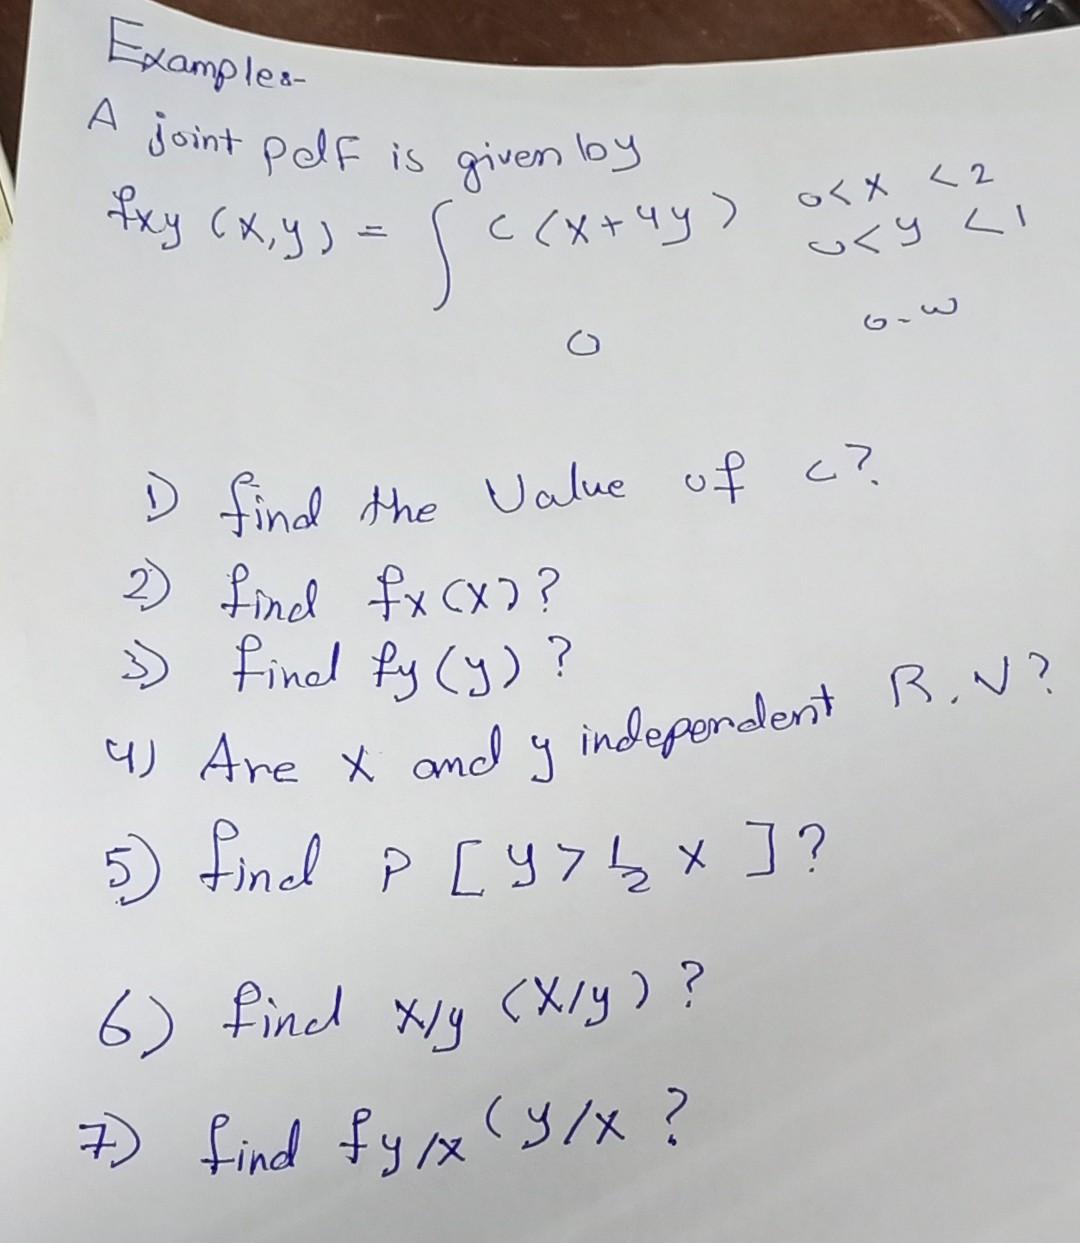 Example:-
A joint pdf is given by
fxy (x,y) = { c (x+4y) 0<x <2
0<y <1
0 o-w
1) find the Value of c?
2) find fx(x)?
3) find fy(y)?
4) Are x and y independent R.V?
5) find P [y > 1/2 x ]?
6) find x/y (x/y)?
7) find fy/x (y/x ?